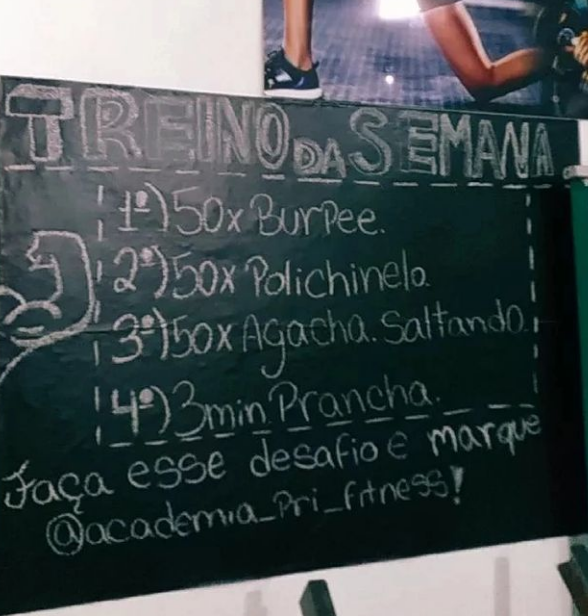 TREINO DA SEMANA
1º) 50x Burpee.
2º) 50x Polichinelo
3º) 50x Agacha. Saltando.
4º) 3min Prancha.
Faça esse desafio e marque
@academia_Pri_fitness!